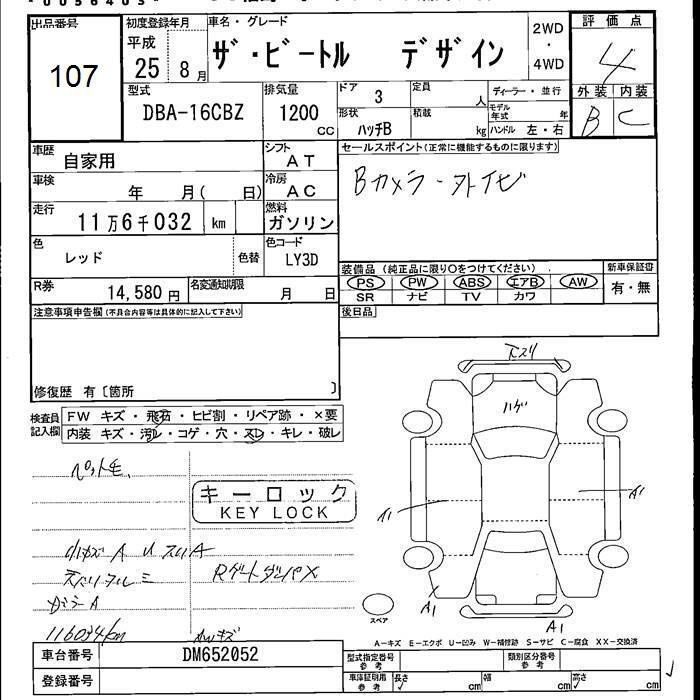 出品番号
107
初度登録年月
平成
25 8月
車名・グレード
ザ・ビートル デザイン
2WD
・
4WD
評価点
4
外装 内装
B C
型式
DBA-16CBZ
排気量
1200
cc
ドア
3
形状
ハッチB
定員
人
積載
kg
ディーラー・並行
モデル年式
年
ハンドル 左・右
車歴
自家用
シフト
AT
車検
年 月( 日)
冷房
AC
走行
11万6千032 km
燃料
ガソリン
色
レッド
色替
色コード
LY3D
R券
14,580 円
名変通知期限
月 日
セールスポイント(正常に機能するものに限ります)
Bカメラ・外ナビ
装備品 (純正品に限り○をつけてください)
PS PW ABS エアB AW
SR ナビ TV カワ
新車保証書
有・無
後日品
注意事項申告欄(不具合内容等は具体的に記入して下さい)
修復歴 有〔箇所 〕
検査員
記入欄
FW キズ・飛石・ヒビ割・リペア跡・×要
内装 キズ・汚レ・コゲ・穴・スレ・キレ・破レ
ペット毛
キーロック
KEY LOCK
小キズ A U スリA
RゲートダンパX
ガラA
116034km
AWキズ
下スリ
ハゲ
A1
A1
A1
A1
スペア
A-キズ E-エクボ U-凹み W-補修跡 S-サビ C-腐食 XX-交換済
車台番号
DM652052
登録番号
型式指定番号
参考
類別区分番号
参考
車庫証明用
参考
長さ
cm
幅
cm
高さ
cm